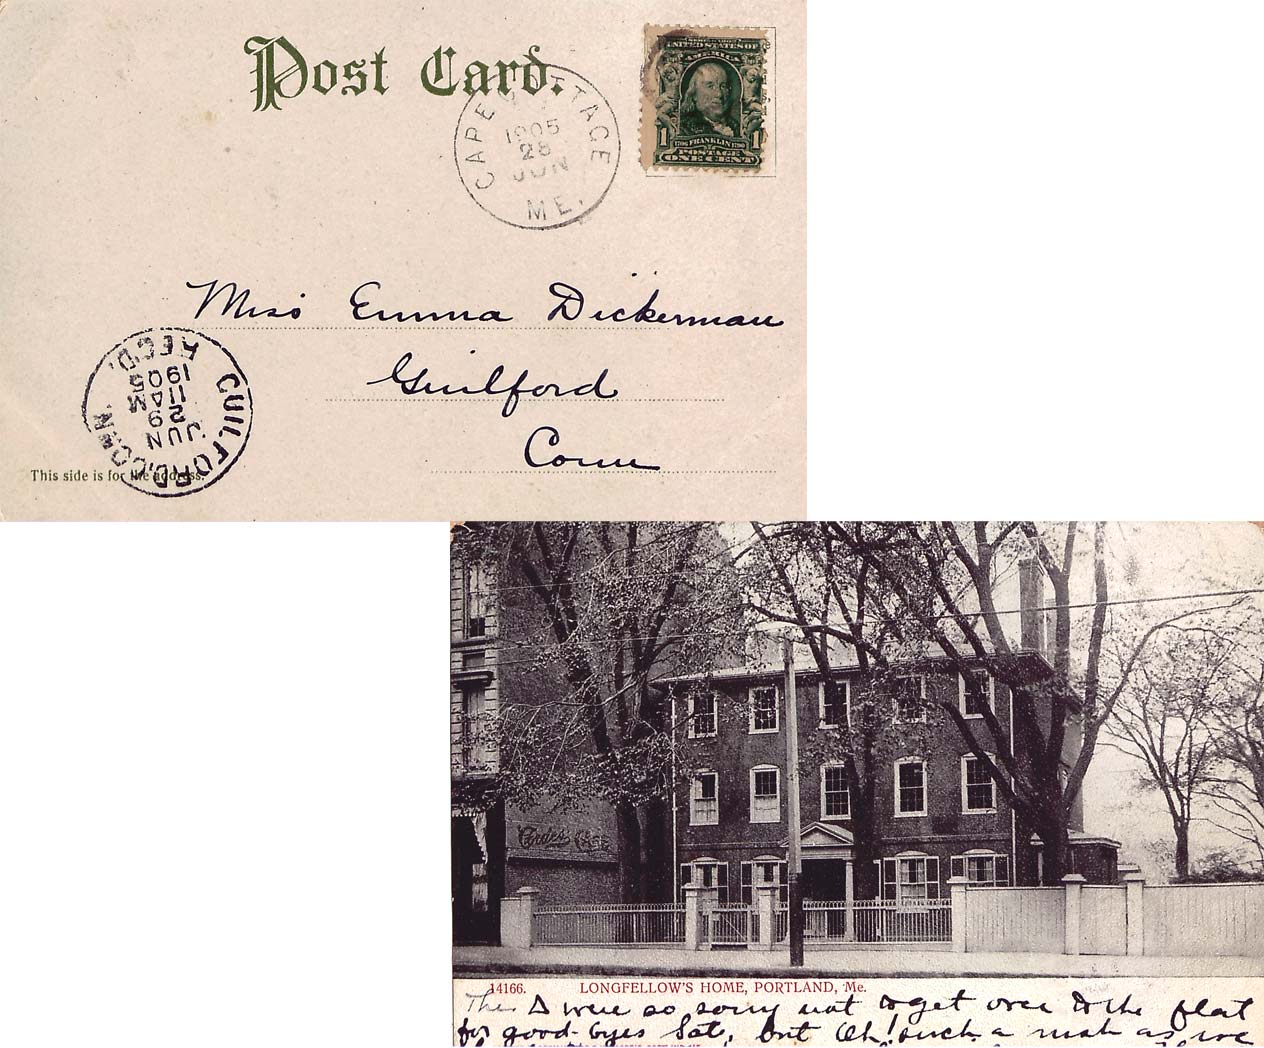 Post Card.
UNITED STATES OF
AMERICA
1 1706 FRANKLIN 1790 1
POSTAGE
ONE CENT
CAPE COTTAGE
1905
28
JUN
ME.
Miss Emma Dickerman
Guilford
Conn
GUILFORD, CONN.
JUN
29
11 AM
1905
REC'D.
This side is for the address.
Cordes Cafe
14166. LONGFELLOW'S HOME, PORTLAND, Me.
The Δ were so sorry not to get over to the flat
for good-byes Sat, but Oh! such a rush as we